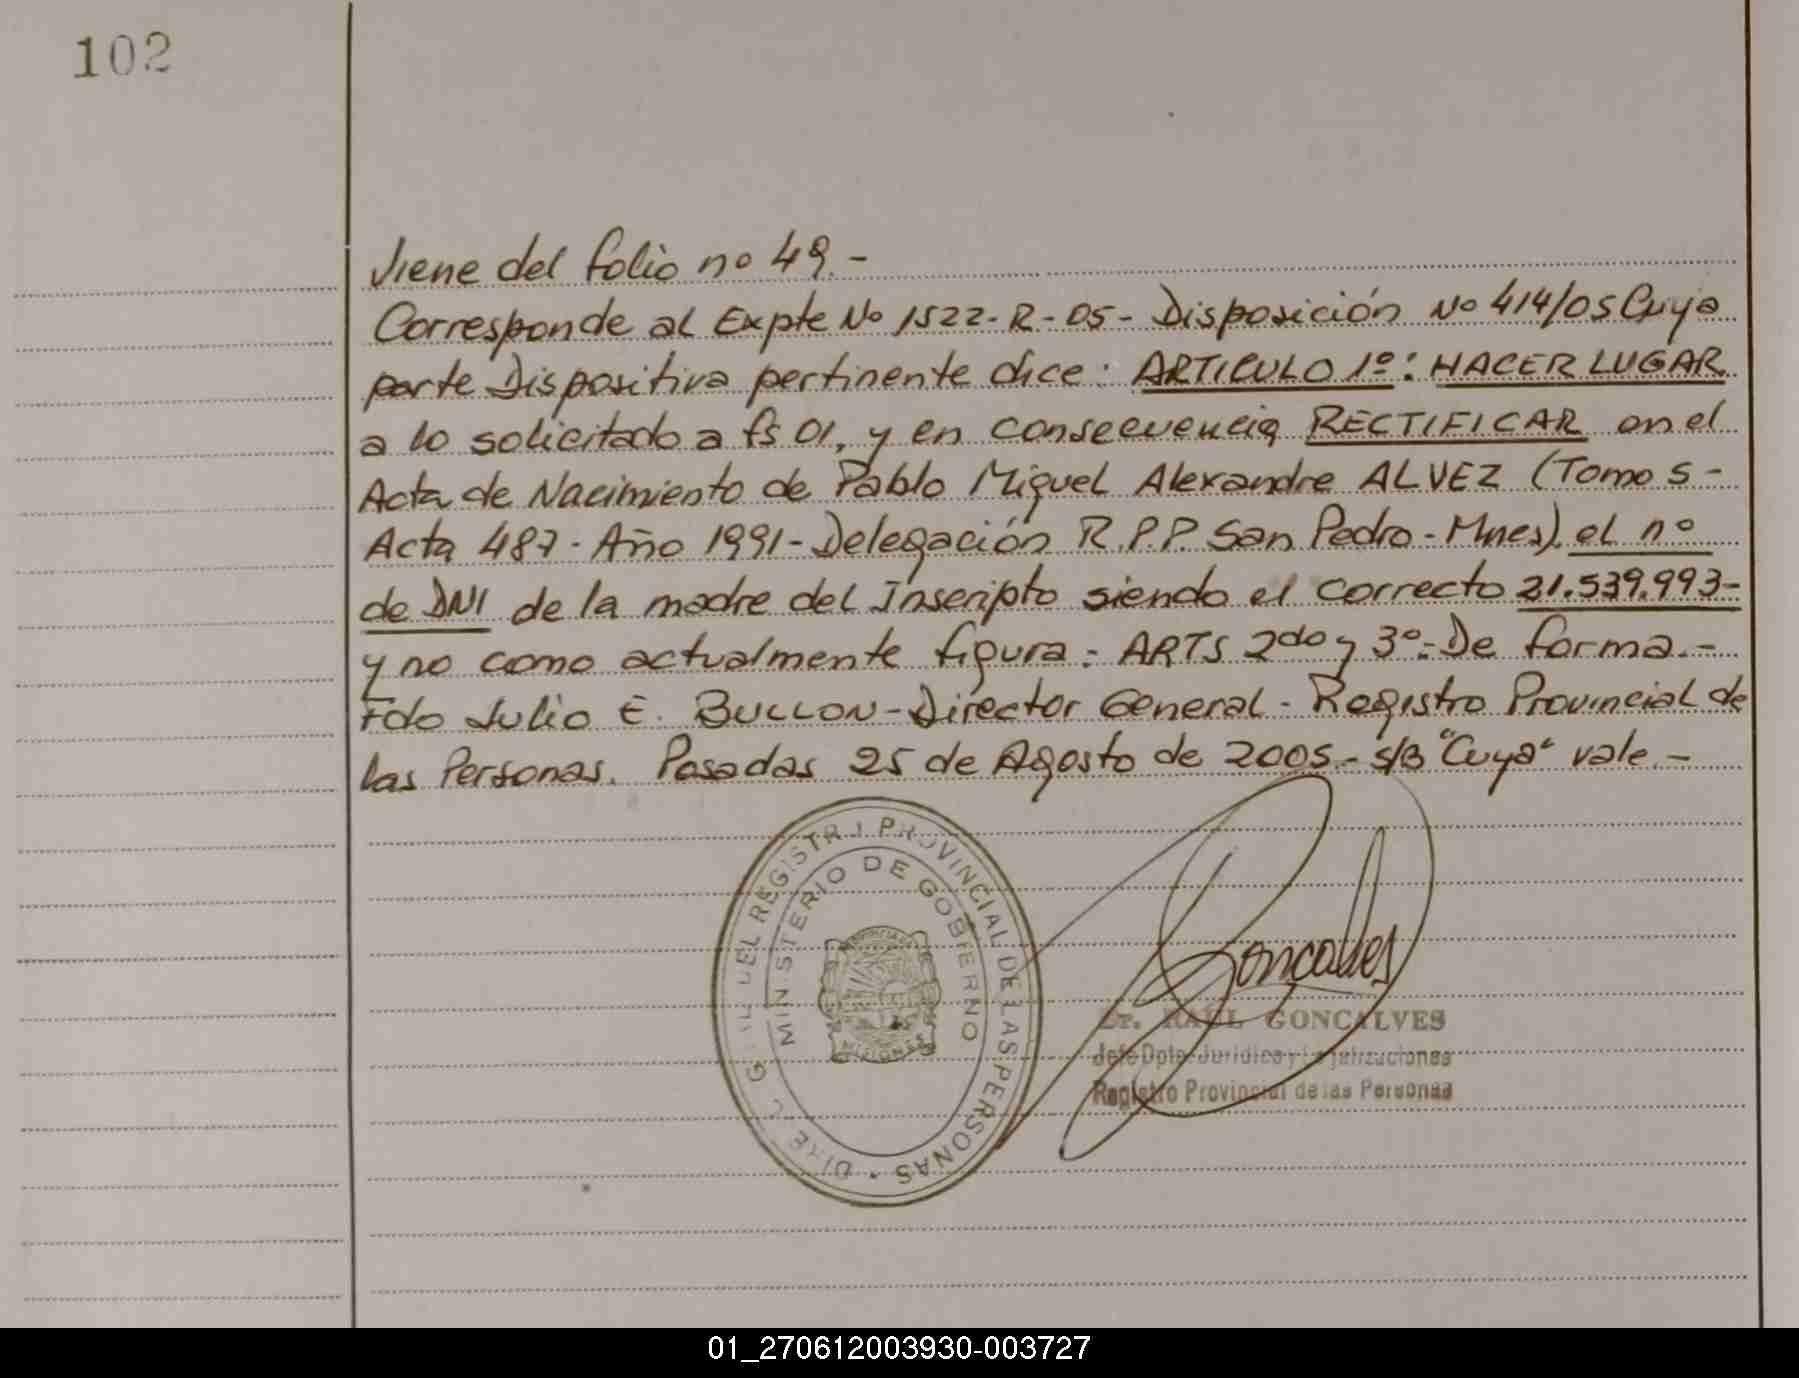 102
Viene del folio nº 49.-
Corresponde al Expte Nº 1522-R-05- Disposición Nº 414/05 Cuya
parte Dispositiva pertinente dice: ARTICULO 1º: HACER LUGAR
a lo solicitado a fs 01, y en consecuencia RECTIFICAR en el
Acta de Nacimiento de Pablo Miguel Alexandre ALVEZ (Tomo 5-
Acta 487- Año 1991- Delegación R.P.P. San Pedro-Mnes). el nº
de DNI de la madre del Inscripto siendo el correcto 21.539.993-
y no como actualmente figura.- ARTS 2do y 3º.- De forma.-
Fdo Julio E. BULLON-Director General- Registro Provincial de
las Personas. Posadas 25 de Agosto de 2005.- S/B "Cuya" vale.-
DEL REGISTRO PROVINCIAL DE LAS PERSONAS
MINISTERIO DE GOBIERNO
MISIONES
Goncalves
Dr. RAUL GONCALVES
Jefe Dpto. Jurídico y Legalizaciones
Registro Provincial de las Personas
01_270612003930-003727